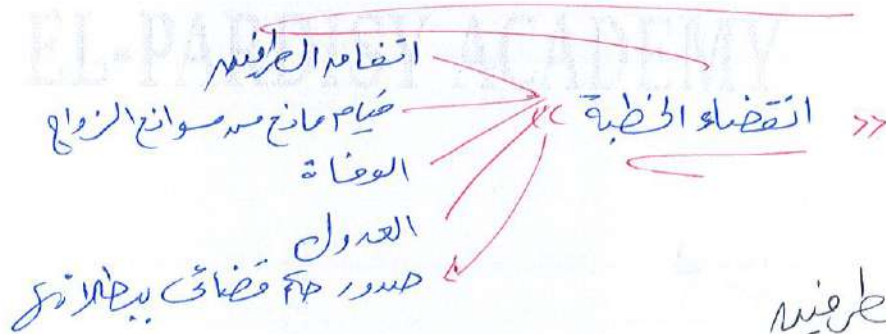 EL-PARDISY ACADEMY
انقضاء الخطبة
اتفاق الطرفين
قيام مانع من موانع الزواج
الوفاة
العدول
صدور حكم قضائى ببطلانها